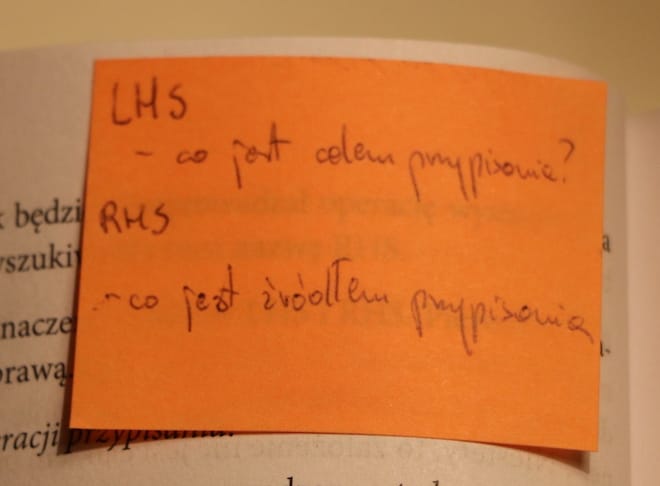 LHS
- co jest celem przypisania?
RHS
- co jest źródłem przypisania
będzi
wyszuki
a
nacze
prawą.
a-
racji przypisania.